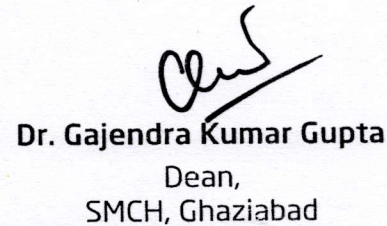 Dr. Gajendra Kumar Gupta
Dean,
SMCH, Ghaziabad